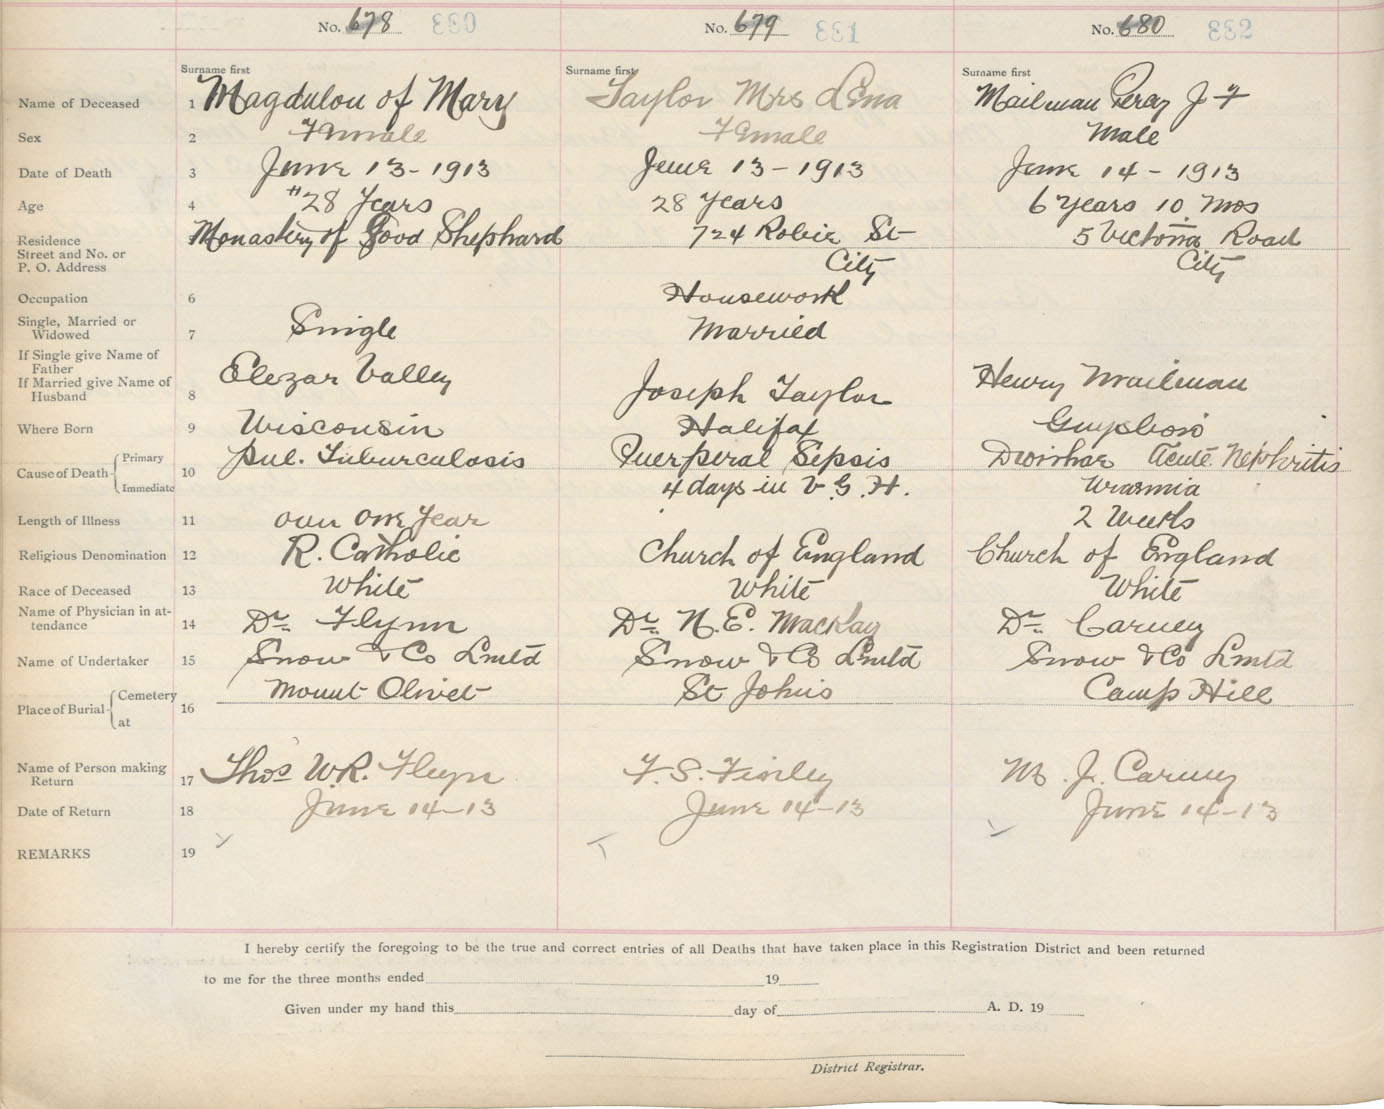 No. 678 330
No. 679 331
No. 680 332
Surname first
Surname first
Surname first
Name of Deceased 1 Magdulou of Mary Taylor Mrs Lena Mailman Percy J F
Sex 2 Female Female Male
Date of Death 3 June 13-1913 June 13-1913 June 14-1913
Age 4 28 Years 28 Years 6 Years 10 Mos
Residence
Street and No. or
P. O. Address
Monastery of Good Shephard 724 Robie St 5 Victoria Road
City City
Occupation 6 Housework
Single, Married or
Widowed 7 Single Married
If Single give Name of
Father
If Married give Name of
Husband 8 Elezar Valley Joseph Taylor Henry Mailman
Where Born 9 Wisconsin Halifax Guysboro
Cause of Death Primary 10 Pul. Tuburculosis Puerperal Sepsis Acute Nephritis
Immediate 4 days in V.G.H. Uraemia
Length of Illness 11 over one year 2 Weeks
Religious Denomination 12 R. Catholic Church of England Church of England
Race of Deceased 13 White White White
Name of Physician in at-
tendance 14 Dr. Flynn Dr. N.E. MacKay Dr. Carney
Name of Undertaker 15 Snow & Co Lmtd Snow & Co Lmtd Snow & Co Lmtd
Place of Burial Cemetery at 16 Mount Olivet St Johns Camp Hill
Name of Person making
Return 17 Thos W.R. Flynn F.S. Finley M. J. Carney
Date of Return 18 June 14-13 June 14-13 June 14-13
REMARKS 19
I hereby certify the foregoing to be the true and correct entries of all Deaths that have taken place in this Registration District and been returned
to me for the three months ended 19
Given under my hand this day of A. D. 19
District Registrar.